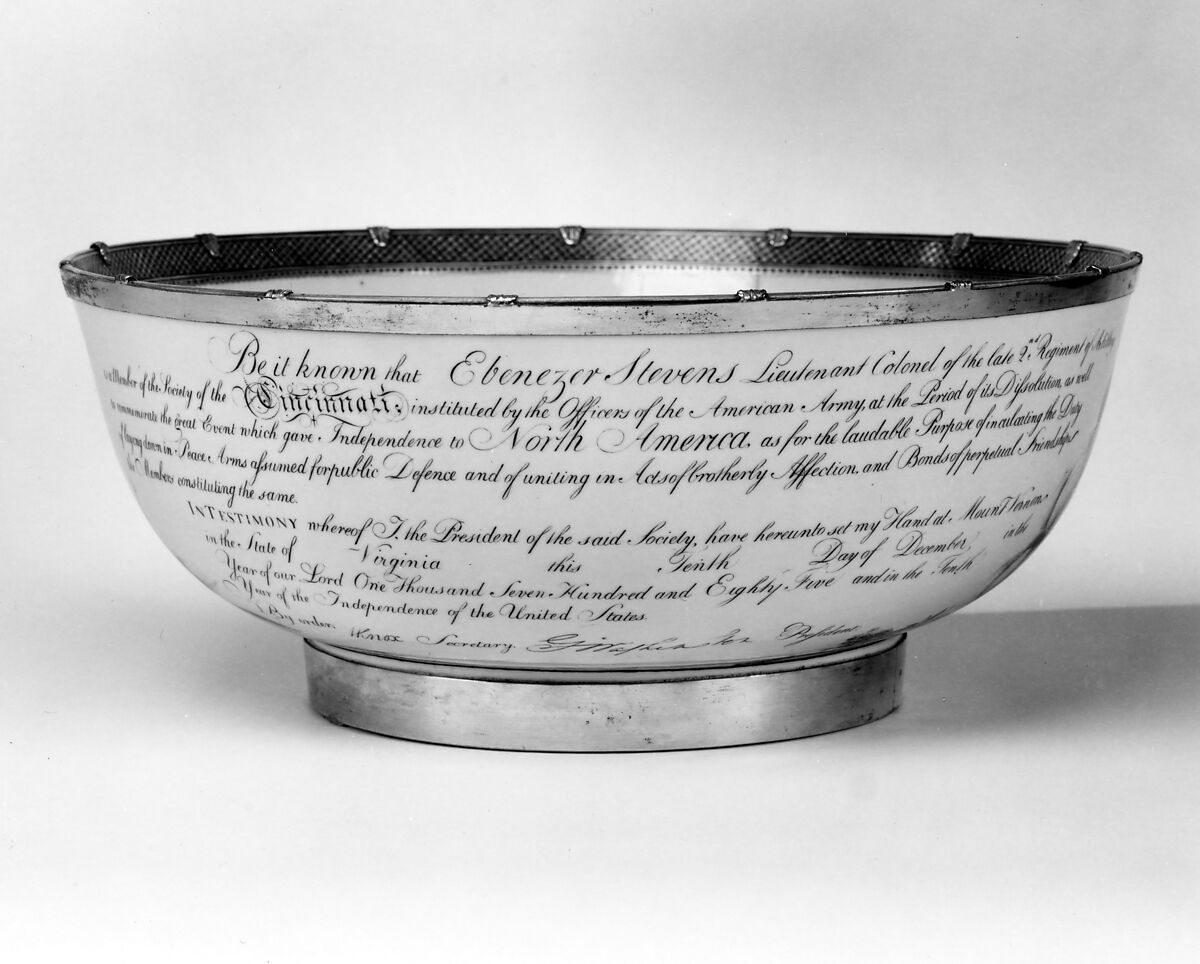 Be it known that Ebenezer Stevens Lieutenant Colonel of the late 2nd Regiment of Artillery
is a Member of the Society of the Cincinnati; instituted by the Officers of the American Army, at the Period of its Dissolution, as well
to commemorate the great Event which gave Independence to North America, as for the laudable Purpose of inculcating the Duty
of laying down in Peace Arms assumed for public Defence and of uniting in Acts of brotherly Affection, and Bonds of perpetual Friendship
the Members constituting the same.
IN TESTIMONY whereof I, the President of the said Society, have hereunto set my Hand at Mount Vernon
in the State of Virginia this Tenth Day of December, in the
Year of our Lord One Thousand Seven Hundred and Eighty Five and in the Tenth
Year of the Independence of the United States.
By order,
Knox Secretary. G Washington President